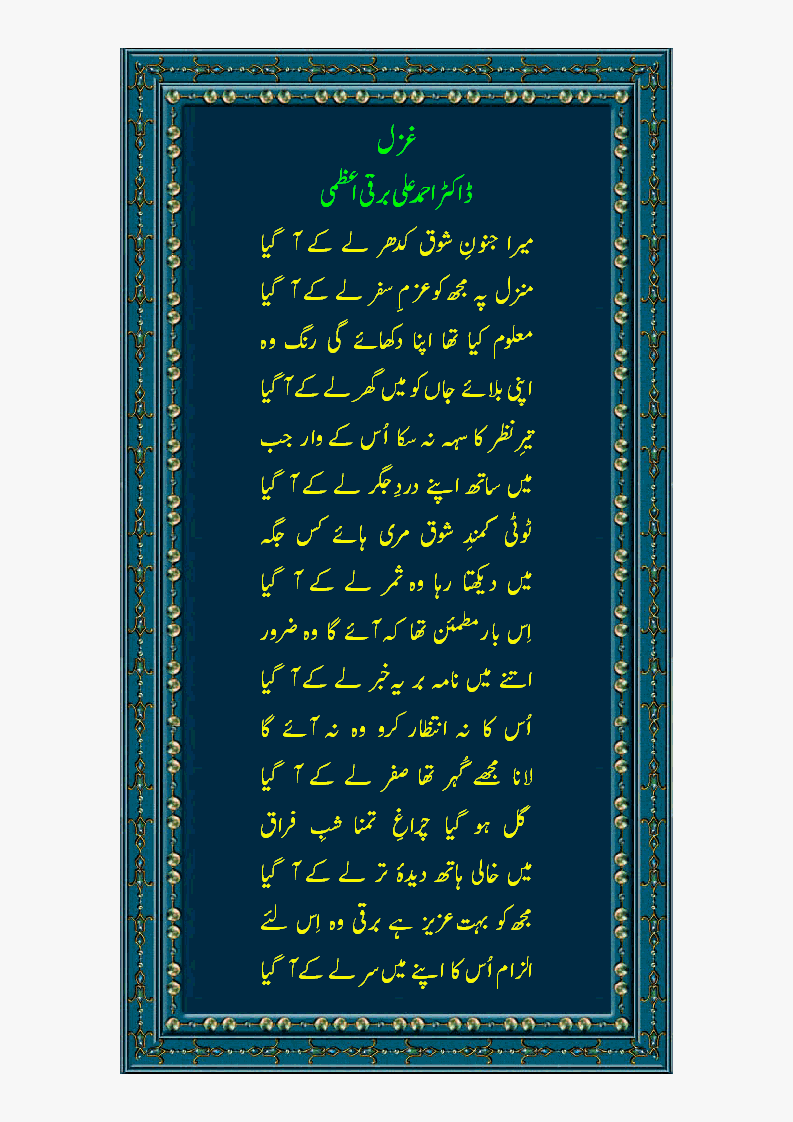 غزل
ڈاکٹر احمد علی برقی اعظمی
میرا جنونِ شوق کدھر لے کے آ گیا
منزل پہ مجھ کو عزمِ سفر لے کے آ گیا
معلوم کیا تھا اپنا دکھائے گی رنگ وہ
اپنی بلائے جاں کو میں گھر لے کے آ گیا
تیرِ نظر کا سہہ نہ سکا اُس کے وار جب
میں ساتھ اپنے دردِ جگر لے کے آ گیا
ٹوٹی کمندِ شوق مری ہائے کس جگہ
میں دیکھتا رہا وہ ثمر لے کے آ گیا
اِس بار مطمئن تھا کہ آئے گا وہ ضرور
اتنے میں نامہ بر یہ خبر لے کے آ گیا
اُس کا نہ انتظار کرو وہ نہ آئے گا
لانا مجھے گُہر تھا صفر لے کے آ گیا
گل ہو گیا چراغِ تمنا شبِ فراق
میں خالی ہاتھ دیدۂ تر لے کے آ گیا
مجھ کو بہت عزیز ہے برقی وہ اِس لئے
الزام اُس کا اپنے میں سر لے کے آ گیا